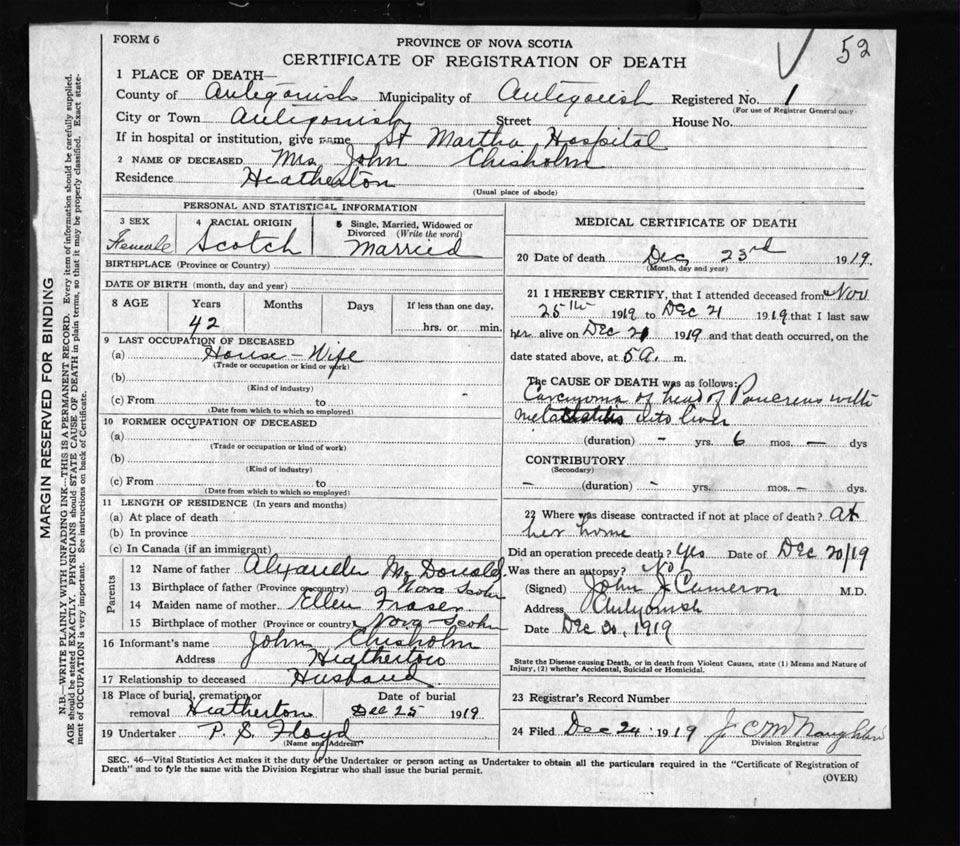 FORM 6
52
PROVINCE OF NOVA SCOTIA
CERTIFICATE OF REGISTRATION OF DEATH
1 PLACE OF DEATH—
County of Antigonish Municipality of Antigonish Registered No. 1
(For use of Registrar General only)
City or Town Antigonish Street House No.
If in hospital or institution, give name St Martha Hospital
2 NAME OF DECEASED Mrs John Chisholm
Residence Heatherton
(Usual place of abode)
PERSONAL AND STATISTICAL INFORMATION
3 SEX Female
4 RACIAL ORIGIN Scotch
5 Single, Married, Widowed or Divorced (Write the word)
Married
BIRTHPLACE (Province or Country)
DATE OF BIRTH (month, day and year)
8 AGE Years Months Days If less than one day,
42 hrs. or min.
9 LAST OCCUPATION OF DECEASED
(a) House-Wife
(Trade or occupation or kind of work)
(b)
(Kind of industry)
(c) From to
(Date from which to which so employed)
10 FORMER OCCUPATION OF DECEASED
(a)
(Trade or occupation or kind of work)
(b)
(Kind of industry)
(c) From to
(Date from which to which so employed)
11 LENGTH OF RESIDENCE (In years and months)
(a) At place of death
(b) In province
(c) In Canada (if an immigrant)
Parents
12 Name of father Alexander McDonald
13 Birthplace of father (Province or country) Nova Scotia
14 Maiden name of mother Ellen Fraser
15 Birthplace of mother (Province or country) Nova Scotia
16 Informant's name John Chisholm
Address Heatherton
17 Relationship to deceased Husband
18 Place of burial, cremation or removal Heatherton
Date of burial Dec 25 1919
19 Undertaker P. S. Floyd
(Name and Address)
MEDICAL CERTIFICATE OF DEATH
20 Date of death Dec 23rd 1919
(Month, day and year)
21 I HEREBY CERTIFY, that I attended deceased from Nov
25th 1919 to Dec 21 1919 that I last saw
her alive on Dec 21 1919 and that death occurred, on the
date stated above, at 5 a. m.
The CAUSE OF DEATH was as follows:
Carcinoma of head of Pancreas with
metastasis into liver
(duration) – yrs. 6 mos. – dys
CONTRIBUTORY
(Secondary)
– (duration) – yrs. – mos. – dys.
22 Where was disease contracted if not at place of death? At
her home
Did an operation precede death? Yes Date of Dec 20/19
Was there an autopsy? No
(Signed) John J Cameron M.D.
Address Antigonish
Date Dec 20, 1919
State the Disease causing Death, or in death from Violent Causes, state (1) Means and Nature of
Injury, (2) whether Accidental, Suicidal or Homicidal.
23 Registrar's Record Number
24 Filed Dec 24 1919 J. C. McNaughton
Division Registrar
SEC. 46—Vital Statistics Act makes it the duty of the Undertaker or person acting as Undertaker to obtain all the particulars required in the "Certificate of Registration of
Death" and to fyle the same with the Division Registrar who shall issue the burial permit.
(OVER)
MARGIN RESERVED FOR BINDING
N.B.—WRITE PLAINLY WITH UNFADING INK—THIS IS A PERMANENT RECORD. Every item of information should be carefully supplied.
AGE should be stated EXACTLY. PHYSICIANS should STATE CAUSE OF DEATH in plain terms, so that it may be properly classified. Exact state-
ment of OCCUPATION is very important. See instructions on back of Certificate.